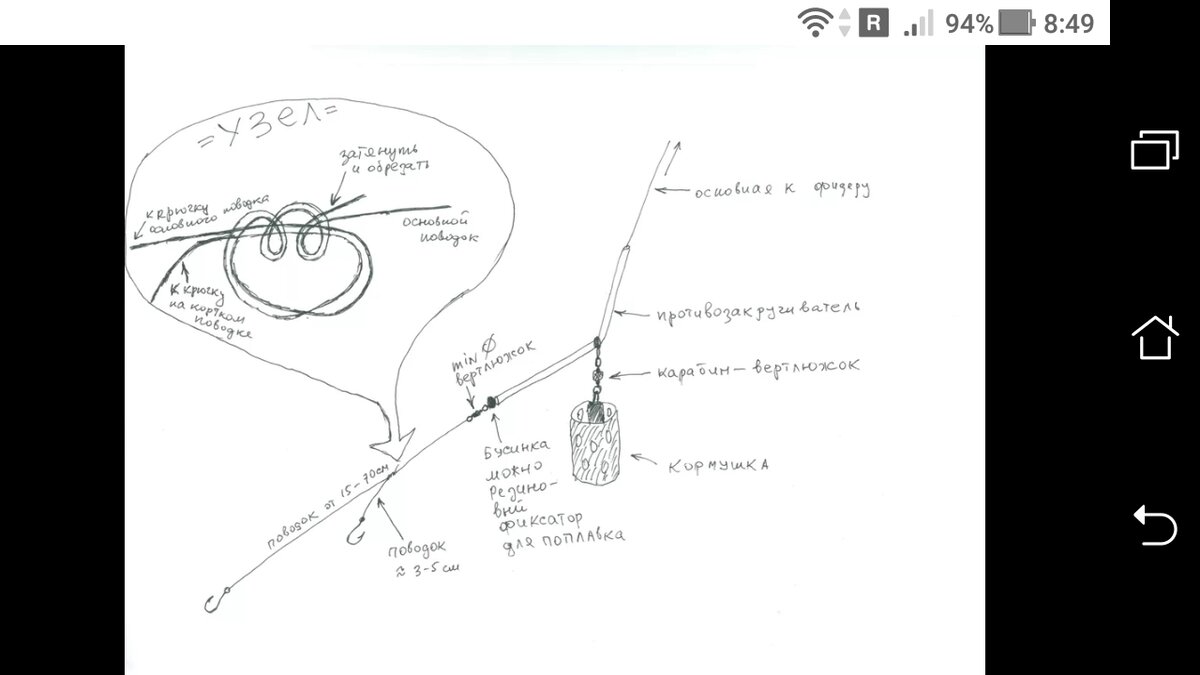 R
94%
8:49
=УЗЕЛ=
затянуть
и обрезать
к крючку
основного поводка
основной
поводок
к крючку
на кортком
поводке
основная к фидеру
противозакручиватель
карабин-вертлюжок
кормушка
min Ø
вертлюжок
Бусинка
можно
резино-
вый
фиксатор
для поплавка
поводок от 15-70см
поводок
≈ 3-5см